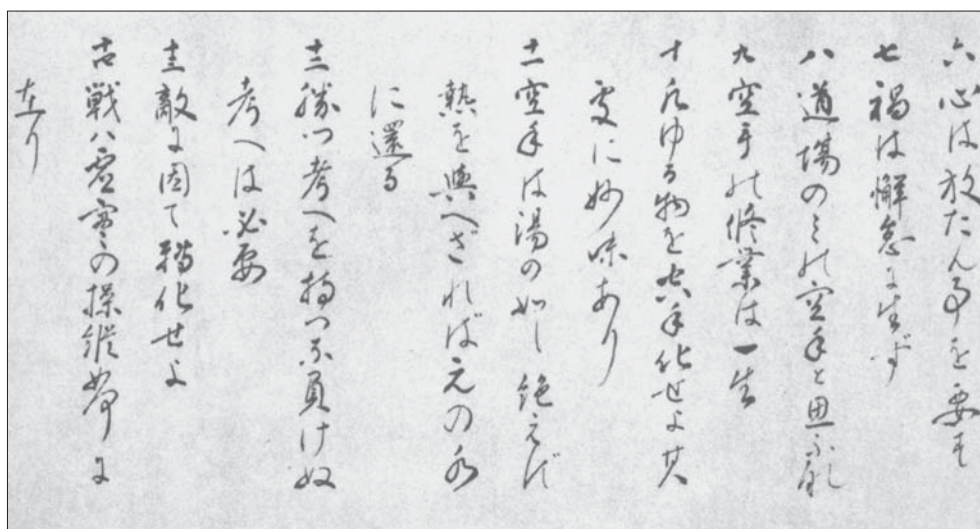 六 心は放たん事を要す
七 禍は懈怠に生ず
八 道場のみの空手と思ふな
九 空手の修業は一生
十 凡ゆる物を空手化せよ其
処に妙味あり
十一 空手は湯の如し絶えず
熱を与へざれば元の水
に還る
十二 勝つ考へを持つな負けぬ
考へは必要
十三 敵に因て転化せよ
十四 戦は虚実の操縦如何に
在り